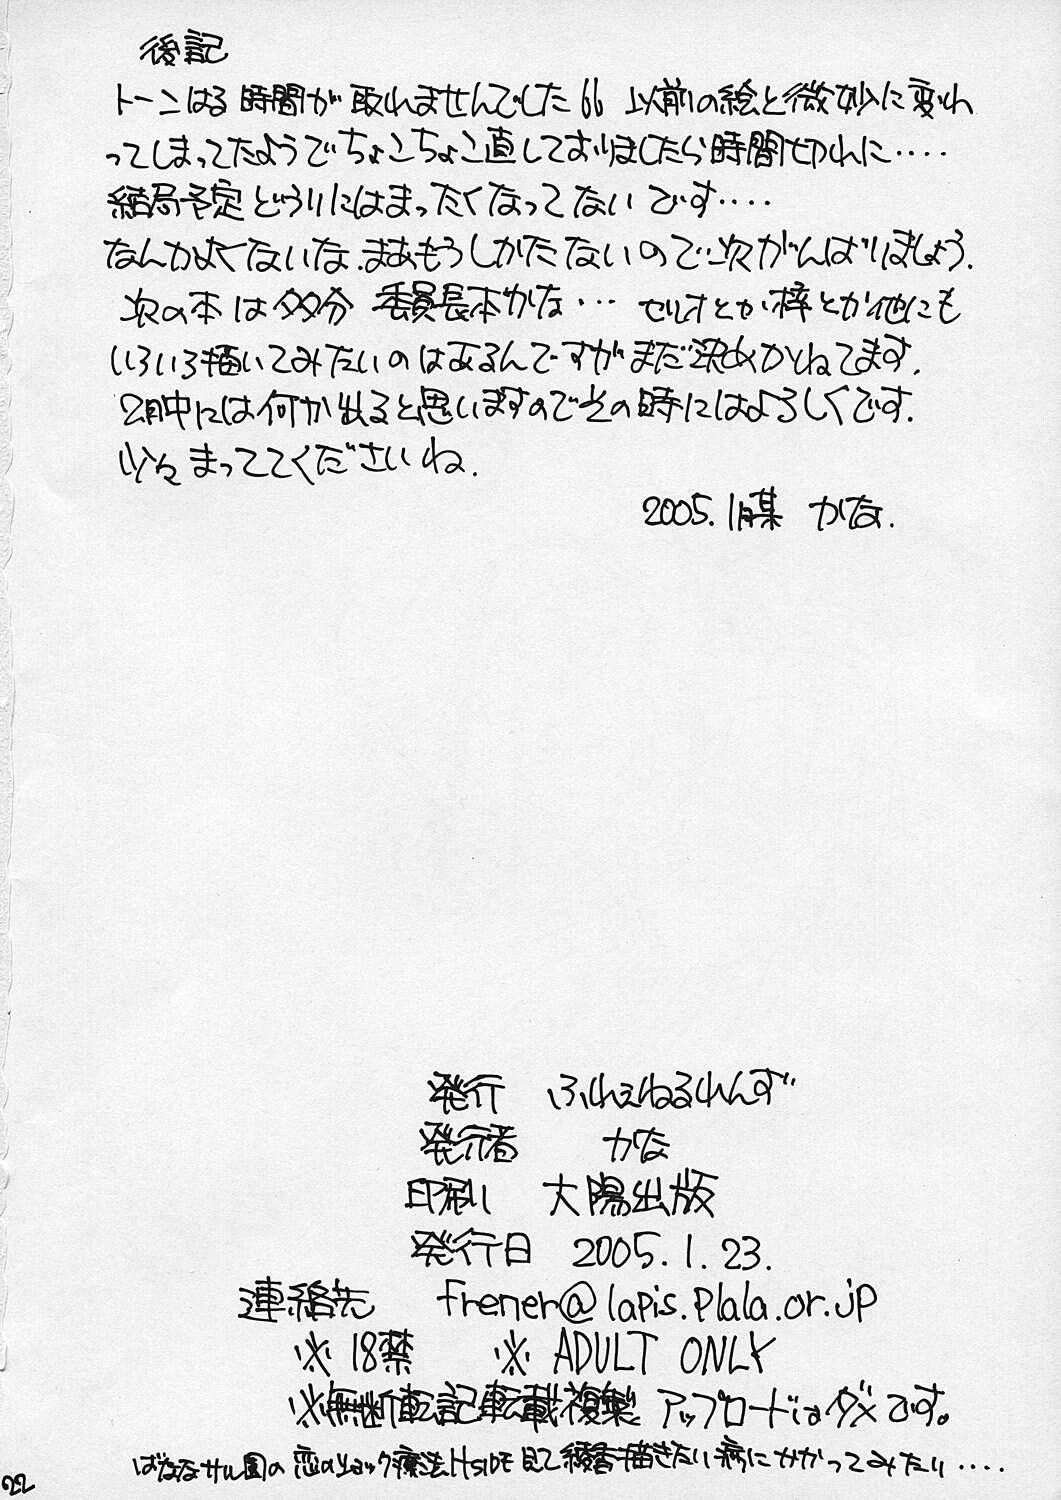 後記
トーンはる時間が取れませんでした66 以前の絵と微妙に変わ
ってしまってたようでちょこちょこ直しておりましたら時間切れに‥‥
結局予定どうりにはまったくなってないです‥‥
なんかよくないな.まあもうしかたないので次がんばりましょう.
次の本は多分 委員長本かな‥. セリオとか梓とか他にも
いろいろ描いてみたいのはあるんですがまだ決めかねてます.
2月中には何か出ると思いますのでその時にはよろしくです.
少々まっててくださいね.
2005.1月某 かな.
発行 ふれぇねるれんず
発行者 かな
印刷 大陽出版
発行日 2005.1.23.
連絡先 frener@lapis.plala.or.jp
※18禁 ※ADULT ONLY
※無断転記転載複製 アップロードはダメです。
ばななサル園の恋のショック療法HSIDE見て綾香描きたい病にかかってみたり‥‥
22